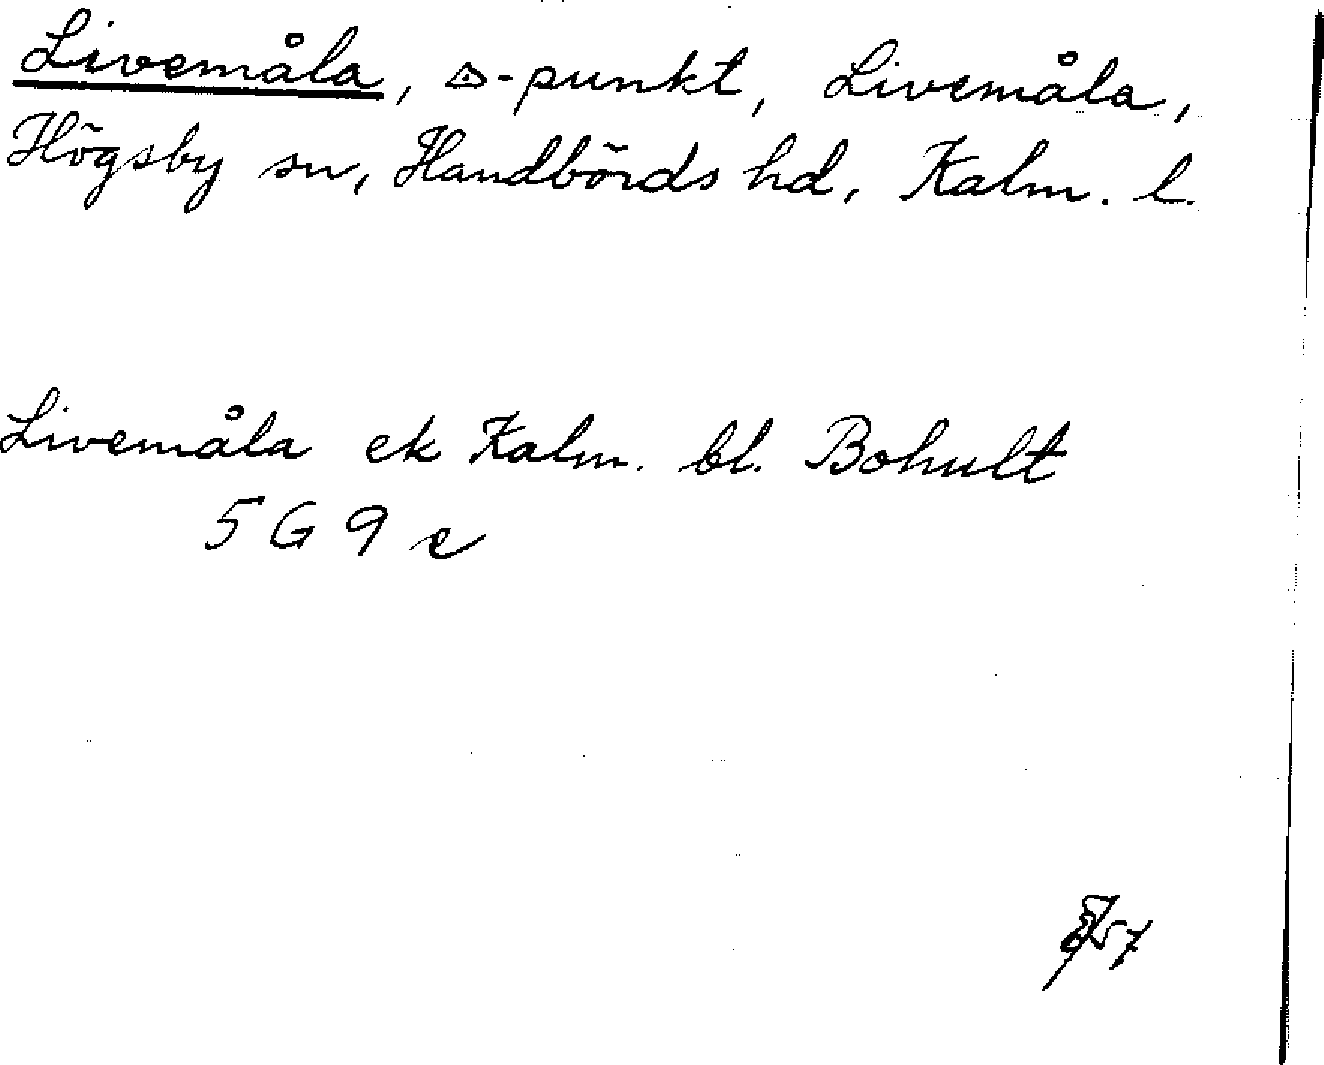 Livemåla, △-punkt, Livemåla,
Högsby sn, Handbörds hd, Kalm. l.
Livemåla ek Kalm. bl. Bohult
5 G 9 e